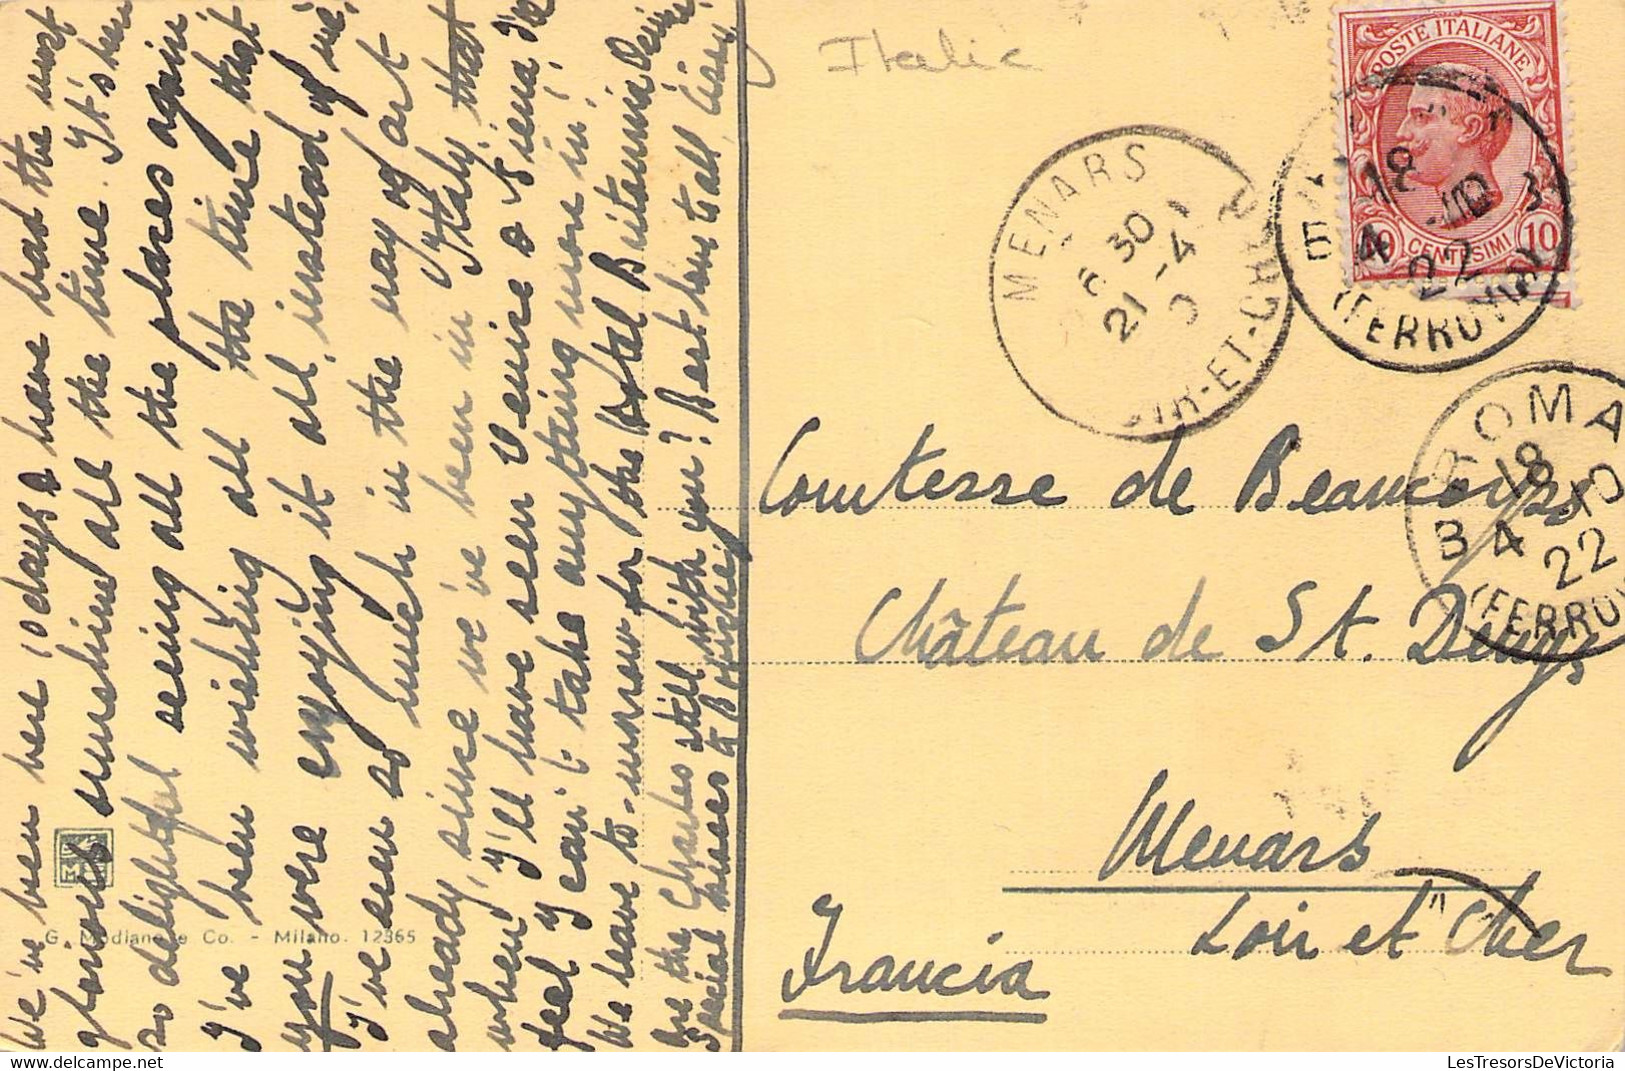 We've been here 10 days & have had the most
glorious sunshine all the time. It's been
so delightful seeing all the places again
I've been wishing all the time that
you were enjoying it all, instead of me,
I've seen so much in the way of art
already, since we've been in Italy, that
when I'll have seen Venice & Siena, I'll
feel I can't take anything more in!
We leave to-morrow for the Hotel Britannia Venice
Are the Charles still with you? Best love to all,
Special kisses to
Italie
POSTE ITALIANE
10 CENTESIMI 10
18
4
22
(FERROVIA)
MENARS
6 30
21 -4
LOIR-ET-CHER
ROMA
18
B 4
22
(FERROV
Comtesse de Beaucorps
Château de St. Denys
Menars
Loir et Cher
Francia
G. Modiano e Co. - Milano. 12365
LesTresorsDeVictoria